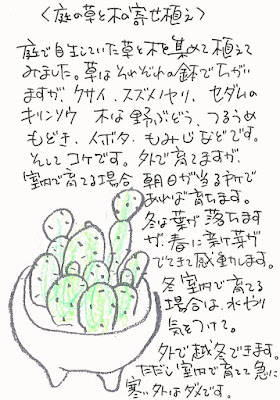 〈庭の草と木の寄せ植え〉
庭で自生していた草と木を集めて植えて
みました。草はそれぞれの鉢でちがい
ますが、クサイ、スズメノヤリ、セダムの
キリンソウ 木は野ぶどう、つるうめ
もどき、イボタ、もみじなどです。
そしてコケです。外で育てますが、
室内で育てる場合 朝日が当る所で
あれば育ちます。
冬は葉が落ちます
が、春に新て芽が
でてきて感動します。
冬室内で育てる
場合は、水やり
気をつけて。
外で越冬できます。
ただし室内で育てて急に
寒い外はダメです。